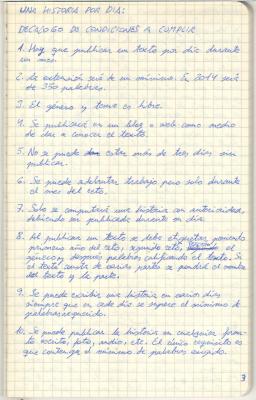 UNA HISTORIA POR DIA:
DECALOGO DE CONDICIONES A CUMPLIR
1. Hay que publicar un texto por día durante
un mes.
2. La extensión será de un mínimo. En 2014 será
de 350 palabras.
3. El género y tema es libre.
4. Se publicará en un blog o web como medio
de dar a conocer el texto.
5. No se puede estar más de tres días sin
publicar.
6. Se puede adelantar trabajo pero solo durante
el mes del reto.
7. Solo se computará una historia con anterioridad,
debiendo ser publicado durante un día.
8. Al publicar un texto se debe etiquetar poniendo
primero año del reto, segundo reto, el
género y después palabras calificando el texto. Si
el texto consta de varias partes se pondrá el nombre
del texto y la parte.
9. Se puede escribir una historia en varios días
siempre que en cada día se supere el mínimo de
palabras requerido.
10. Se puede publicar la historia en cualquier forma-
to escrito, foto, audio, etc. El único requisito es
que contenga el mínimo de palabras exigido.
3